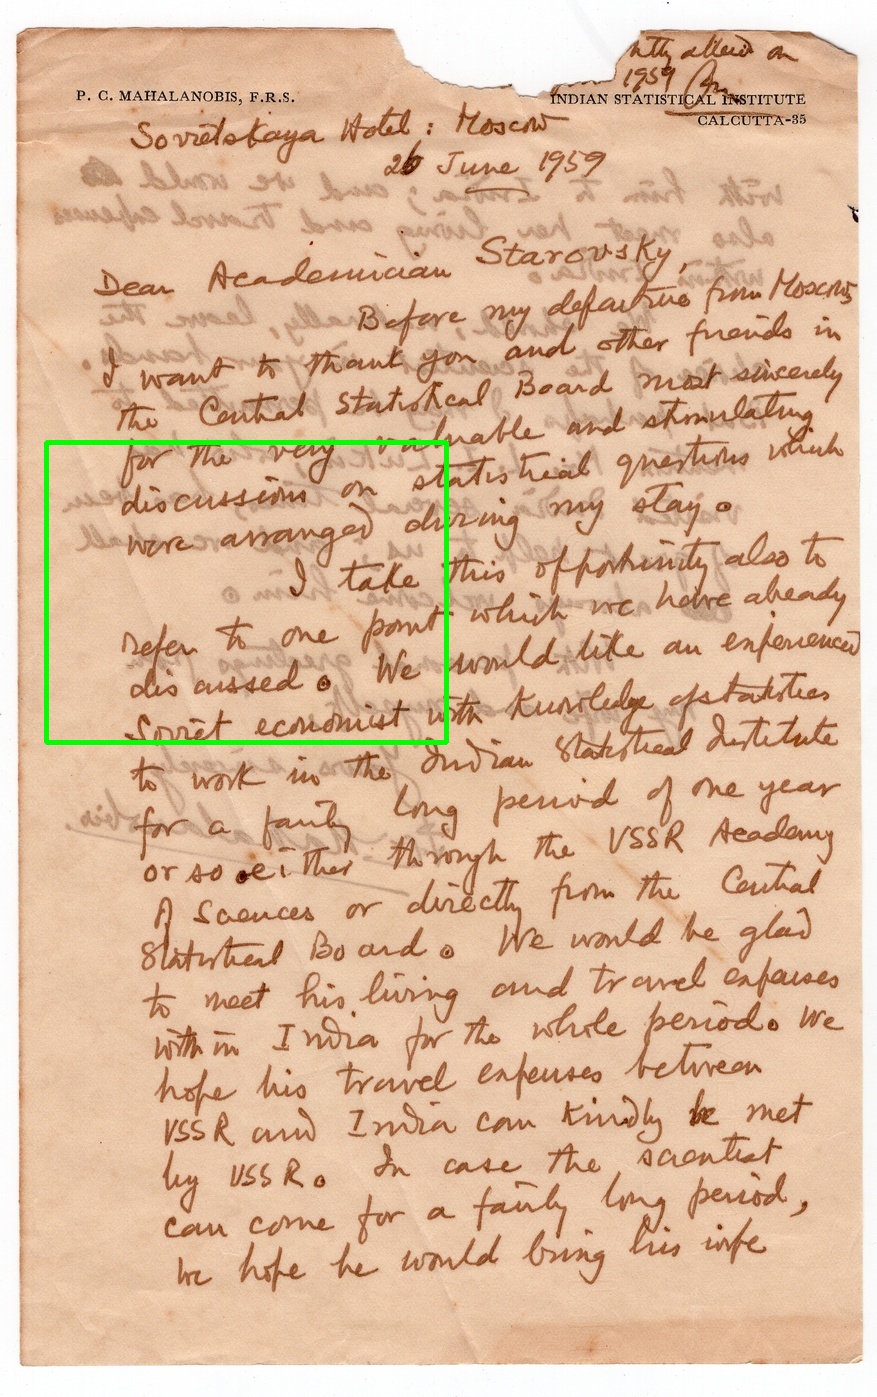 ntly allied on
1959
P. C. MAHALANOBIS, F.R.S.
INDIAN STATISTICAL INSTITUTE
CALCUTTA-35
Sovietskaya Hotel: Moscow
26 June 1959
Dear Academician Starovsky,
Before my departure from Moscow,
I want to thank you and other friends in
the Central Statistical Board most sincerely
for the very valuable and stimulating
discussions on statistical questions which
were arranged during my stay.
I take this opportunity also to
refer to one point which we have already
discussed. We would like an experienced
Soviet economist with knowledge of statistics
to work in the Indian Statistical Institute
for a fairly long period of one year
or so either through the USSR Academy
of Sciences or directly from the Central
Statistical Board. We would be glad
to meet his living and travel expenses
within India for the whole period. We
hope his travel expenses between
USSR and India can kindly be met
by USSR. In case the scientist
can come for a fairly long period,
we hope he would bring his wife